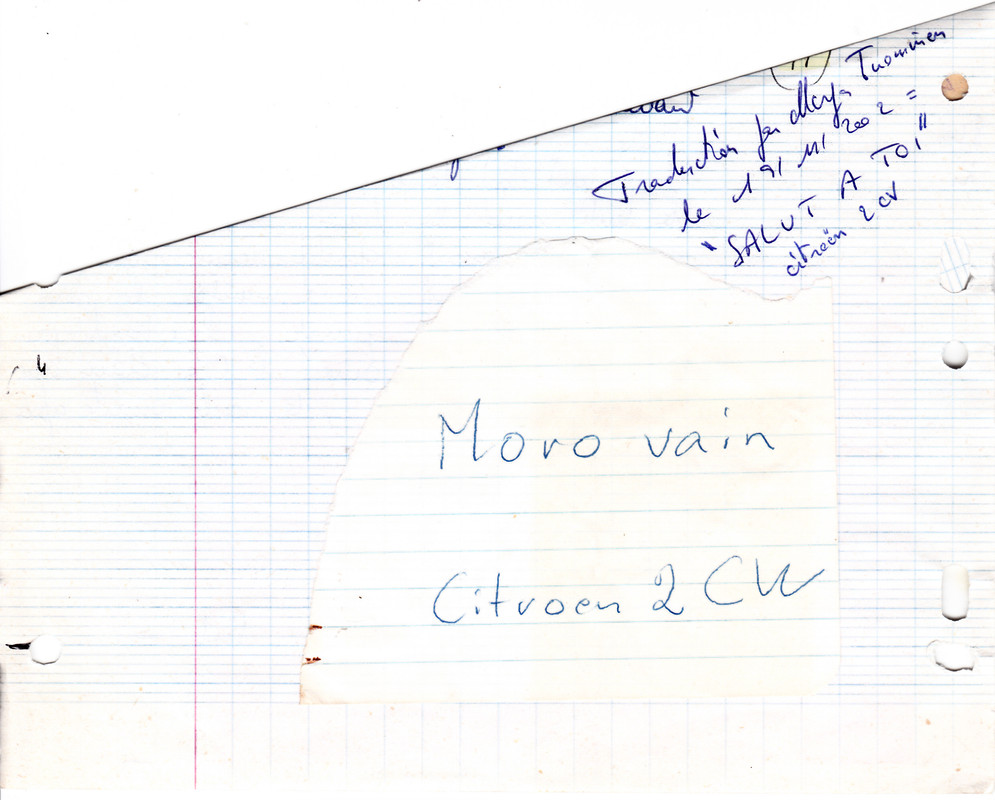 Traduction par Merja Tuominen
le 19/11/2002 =
"SALUT A TOI"
citroën 2 CV
4
Moro vain
Citroen 2 CV